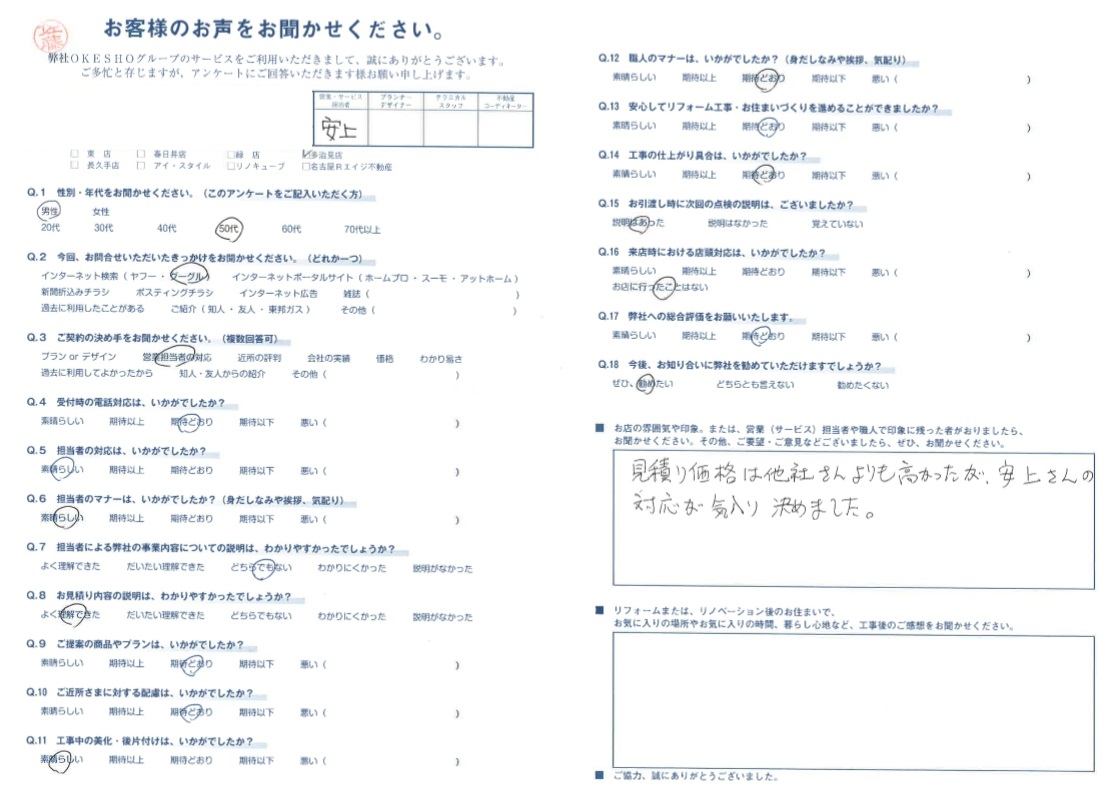 佐藤
お客様のお声をお聞かせください。
弊社ＯＫＥＳＨＯグループのサービスをご利用いただきまして、誠にありがとうございます。
ご多忙と存じますが、アンケートにご回答いただきます様お願い申し上げます。
営業・サービス
担当者
プランナー
デザイナー
テクニカル
スタッフ
不動産
コーディネーター
安上
□ 東 店 □ 春日井店 □緑 店 ☑多治見店
□ 長久手店 □ アイ・スタイル □リノキューブ □名古屋Ｒエイジ不動産
Q.1 性別・年代をお聞かせください。（このアンケートをご記入いただく方）
男性 女性
20代 30代 40代 50代 60代 70代以上
Q.2 今回、お問合せいただいたきっかけをお聞かせください。（どれか一つ）
インターネット検索（ ヤフー ・ グーグル ） インターネットポータルサイト（ ホームプロ ・ スーモ ・ アットホーム ）
新聞折込みチラシ ポスティングチラシ インターネット広告 雑誌（ ）
過去に利用したことがある ご紹介（ 知人 ・ 友人 ・ 東邦ガス ） その他（ ）
Q.3 ご契約の決め手をお聞かせください。（複数回答可）
プラン or デザイン 営業担当者の対応 近所の評判 会社の実績 価格 わかり易さ
過去に利用してよかったから 知人・友人からの紹介 その他（ ）
Q.4 受付時の電話対応は、いかがでしたか？
素晴らしい 期待以上 期待どおり 期待以下 悪い（ ）
Q.5 担当者の対応は、いかがでしたか？
素晴らしい 期待以上 期待どおり 期待以下 悪い（ ）
Q.6 担当者のマナーは、いかがでしたか？（身だしなみや挨拶、気配り）
素晴らしい 期待以上 期待どおり 期待以下 悪い（ ）
Q.7 担当者による弊社の事業内容についての説明は、わかりやすかったでしょうか？
よく理解できた だいたい理解できた どちらでもない わかりにくかった 説明がなかった
Q.8 お見積り内容の説明は、わかりやすかったでしょうか？
よく理解できた だいたい理解できた どちらでもない わかりにくかった 説明がなかった
Q.9 ご提案の商品やプランは、いかがでしたか？
素晴らしい 期待以上 期待どおり 期待以下 悪い（ ）
Q.10 ご近所さまに対する配慮は、いかがでしたか？
素晴らしい 期待以上 期待どおり 期待以下 悪い（ ）
Q.11 工事中の美化・後片付けは、いかがでしたか？
素晴らしい 期待以上 期待どおり 期待以下 悪い（ ）
Q.12 職人のマナーは、いかがでしたか？（身だしなみや挨拶、気配り）
素晴らしい 期待以上 期待どおり 期待以下 悪い（ ）
Q.13 安心してリフォーム工事・お住まいづくりを進めることができましたか？
素晴らしい 期待以上 期待どおり 期待以下 悪い（ ）
Q.14 工事の仕上がり具合は、いかがでしたか？
素晴らしい 期待以上 期待どおり 期待以下 悪い（ ）
Q.15 お引渡し時に次回の点検の説明は、ございましたか？
説明はあった 説明はなかった 覚えていない
Q.16 来店時における店頭対応は、いかがでしたか？
素晴らしい 期待以上 期待どおり 期待以下 悪い（ ）
お店に行ったことはない
Q.17 弊社への総合評価をお願いいたします。
素晴らしい 期待以上 期待どおり 期待以下 悪い（ ）
Q.18 今後、お知り合いに弊社を勧めていただけますでしょうか？
ぜひ、勧めたい どちらとも言えない 勧めたくない
■ お店の雰囲気や印象。または、営業（サービス）担当者や職人で印象に残った者がおりましたら、
お聞かせください。その他、ご要望・ご意見などございましたら、ぜひ、お聞かせください。
見積り価格は他社さんよりも高かったが、安上さんの
対応が気入り 決めました。
■ リフォームまたは、リノベーション後のお住まいで、
お気に入りの場所やお気に入りの時間、暮らし心地など、工事後のご感想をお聞かせください。
■ ご協力、誠にありがとうございました。